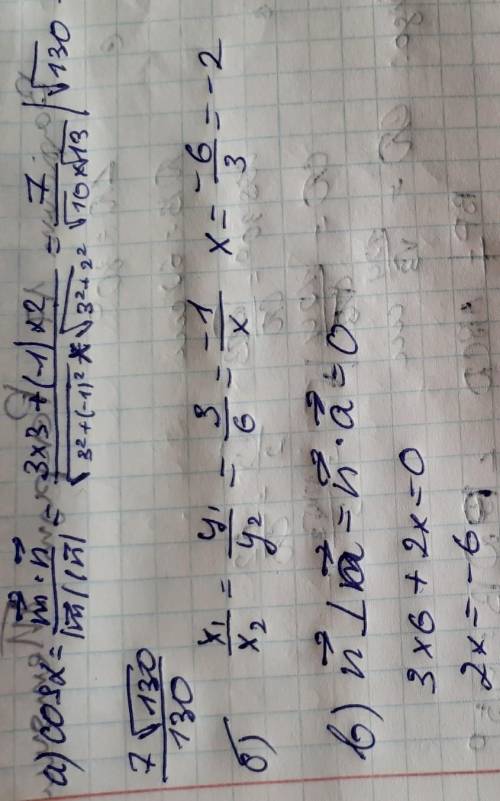 а) cos x = m⃗ · n⃗ / |m⃗| |n⃗| = 3×3+(-1)×2 / √3²+(-1)² × √3²+2² = 7 / √10×√13 | √130
7√130 / 130
б) x₁/x₂ = y₁/y₂ = 3/6 = -1/x x = -6/3 = -2
в) n⃗ ⊥ a⃗ = n⃗ · a⃗ = 0
3×6+2x=0
2x=-6